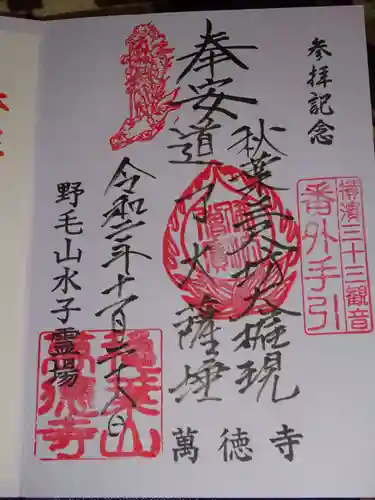 参拝記念
横濱三十三観音
番外手引
奉安
秋葉三尺坊大権現
道了大薩埵
萬徳寺
令和二年十一月二十八日
野毛山水子霊場
萬徳寺